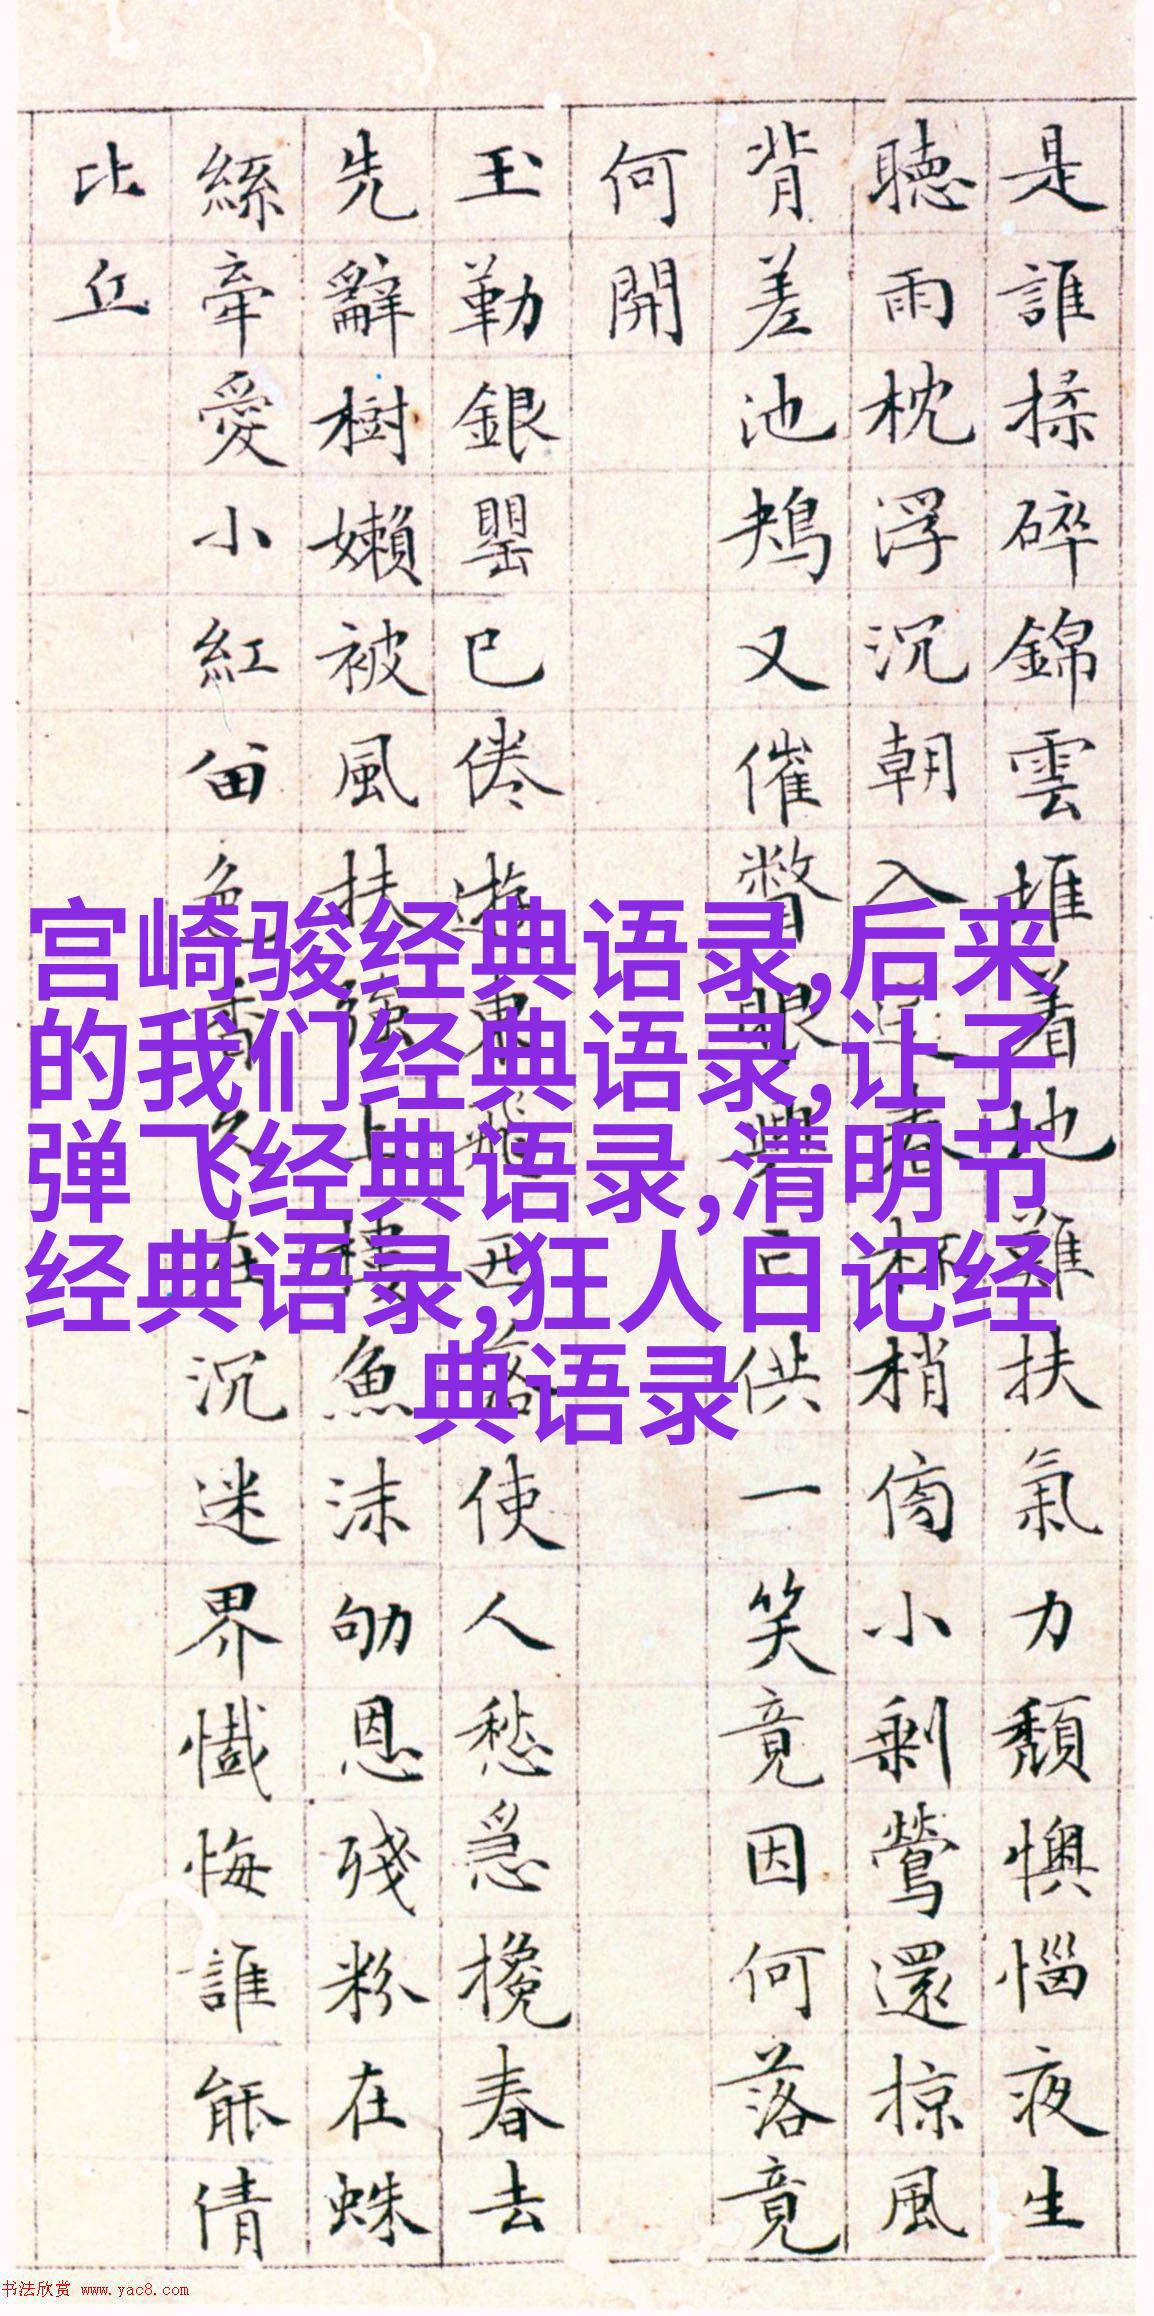 是誰揉碎錦雲堆着地難扶氣力頹懊惱夜生
聽雨枕浮沉朝入林梢傍小剩鶯還掠風
背差池鴂又催瞥眼興亡供一笑竟因何落竟
何開
玉勒銀罌已倦遊東飛西落使人愁急攙春去
先辭樹嬾被風扶強上樓魚沫劬恩殘粉在蛛
絲牽愛小紅留色香久在沉迷界懺悔誰能倩
比丘
宫崎骏经典语录,后来
的我们经典语录,让子
弹飞经典语录,清明节
经典语录,狂人日记经
典语录
书法欣赏 www.yac8.com